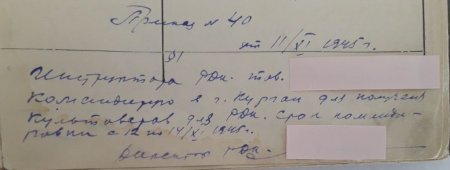 Приказ № 40
от 11/XI 1945 г.
§1
Инструктора РДК. тов.
Командирую в г. Курган для получения
культоваров для РДК. Срок команди-
ровки с 12 по 14/XI 1945 г.
Директор РДК.